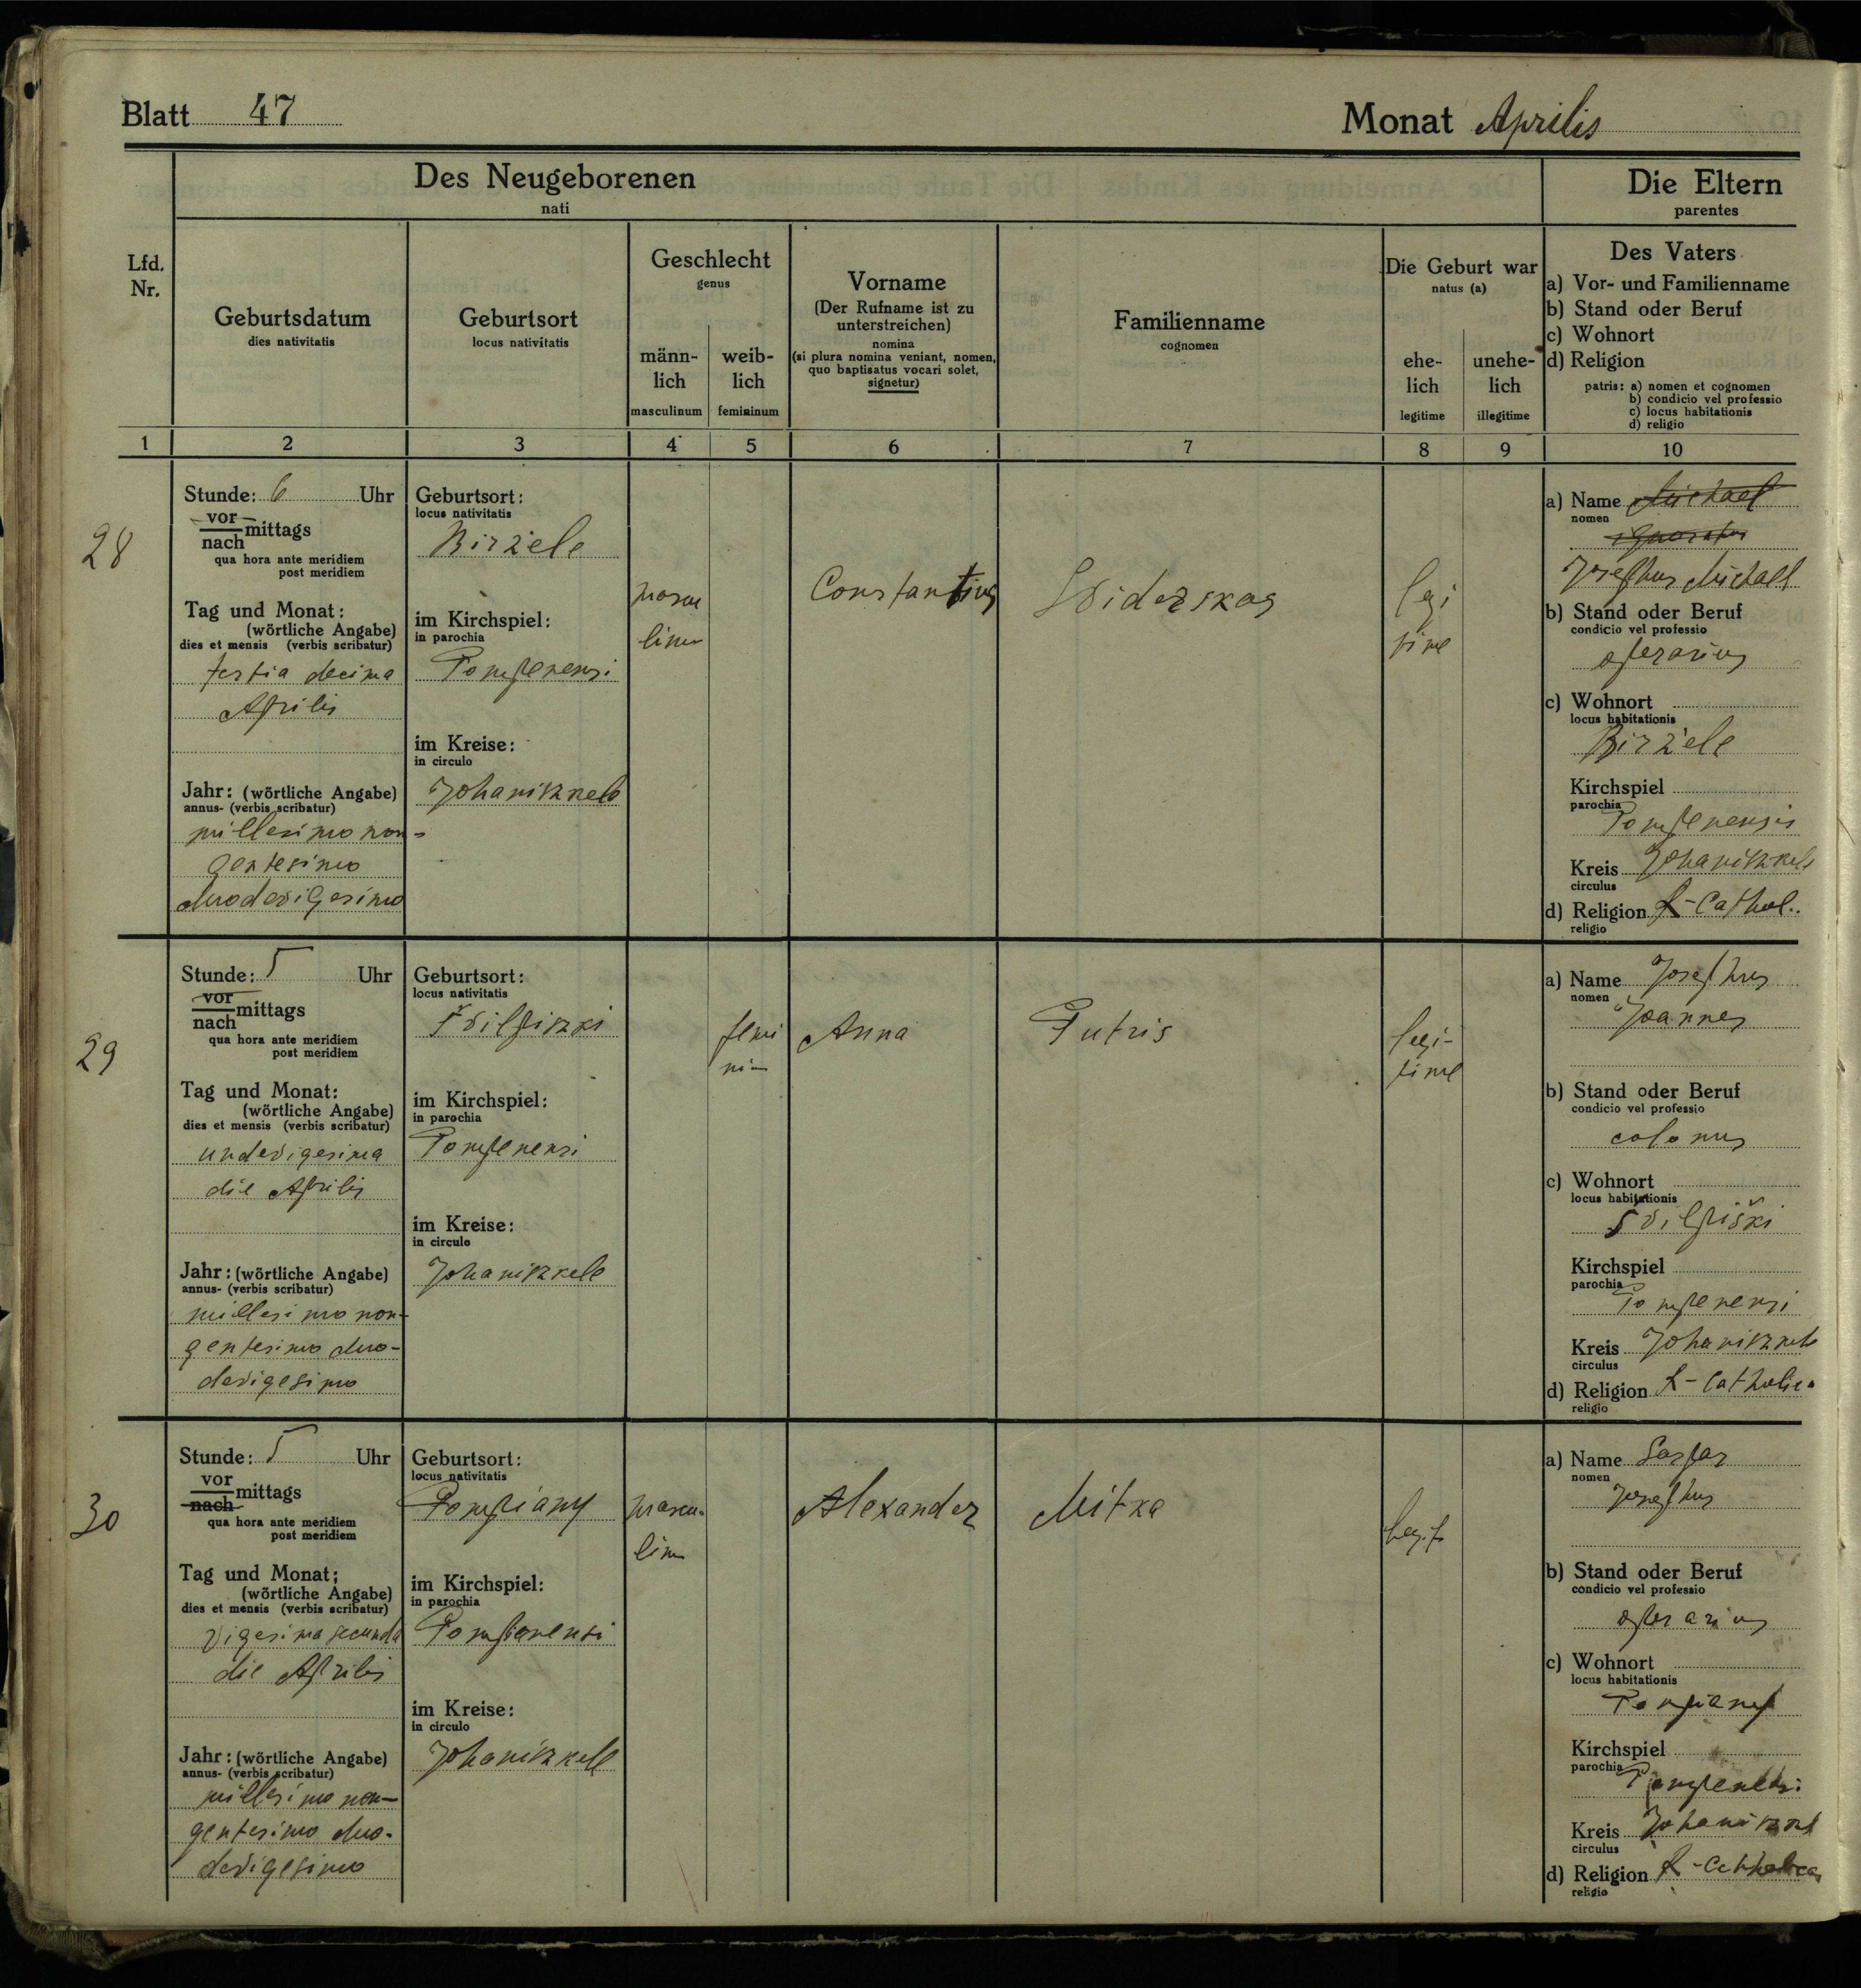 Blatt 47
Monat Aprilis
Des Neugeborenen
nati
Die Eltern
parentes
Lfd.
Nr.
Geburtsdatum
dies nativitatis
Geburtsort
locus nativitatis
Geschlecht
genus
männ-
lich
masculinum
weib-
lich
femininum
Vorname
(Der Rufname ist zu
unterstreichen)
nomina
(si plura nomina veniant, nomen,
quo baptisatus vocari solet,
signetur)
Familienname
cognomen
Die Geburt war
natus (a)
ehe-
lich
legitime
unehe-
lich
illegitime
Des Vaters
a) Vor- und Familienname
b) Stand oder Beruf
c) Wohnort
d) Religion
patris: a) nomen et cognomen
b) condicio vel professio
c) locus habitationis
d) religio
1 2 3 4 5 6 7 8 9 10
28
Stunde: 6 Uhr
vor
nach mittags
qua hora ante meridiem
post meridiem
Tag und Monat:
(wörtliche Angabe)
dies et mensis (verbis scribatur)
tertia decima
Aprilis
Jahr: (wörtliche Angabe)
annus- (verbis scribatur)
millesimo non-
gentesimo
duodevigesimo
Geburtsort:
locus nativitatis
Birżele
im Kirchspiel:
in parochia
Pompenensi
im Kreise:
in circulo
Johaniszkele
mascu
linu
Constantius
Widerskas
legi
time
a) Name Michael
nomen
ignoratus
Josephus Michael
b) Stand oder Beruf
condicio vel professio
operarius
c) Wohnort
locus habitationis
Birżele
Kirchspiel
parochia
Pompenensis
Kreis Johaniszkele
circulus
d) Religion R-Cathol.
religio
29
Stunde: 5 Uhr
vor
nach mittags
qua hora ante meridiem
post meridiem
Tag und Monat:
(wörtliche Angabe)
dies et mensis (verbis scribatur)
undevigesima
die Aprilis
Jahr: (wörtliche Angabe)
annus- (verbis scribatur)
millesimo non-
gentesimo duo-
devigesimo
Geburtsort:
locus nativitatis
Švilpiszki
im Kirchspiel:
in parochia
Pompenensi
im Kreise:
in circulo
Johaniszkele
femi
nin
Anna
Putris
legi-
time
a) Name Josephus
nomen
Joannes
b) Stand oder Beruf
condicio vel professio
colonus
c) Wohnort
locus habitationis
Švilpiški
Kirchspiel
parochia
Pompenensi
Kreis Johaniszkele
circulus
d) Religion R-Catholica
religio
30
Stunde: 5 Uhr
vor
nach mittags
qua hora ante meridiem
post meridiem
Tag und Monat:
(wörtliche Angabe)
dies et mensis (verbis scribatur)
vigesima secunda
die Aprilis
Jahr: (wörtliche Angabe)
annus- (verbis scribatur)
millesimo non-
gentesimo duo-
devigesimo
Geburtsort:
locus nativitatis
Pompiany
im Kirchspiel:
in parochia
Pompianensi
im Kreise:
in circulo
Johaniszkele
mascu-
linu
Alexander
Mitka
legit
a) Name Caspar
nomen
Josephus
b) Stand oder Beruf
condicio vel professio
operarius
c) Wohnort
locus habitationis
Pompiany
Kirchspiel
parochia
Pompenensi
Kreis Johaniszkel
circulus
d) Religion R-Catholica
religio